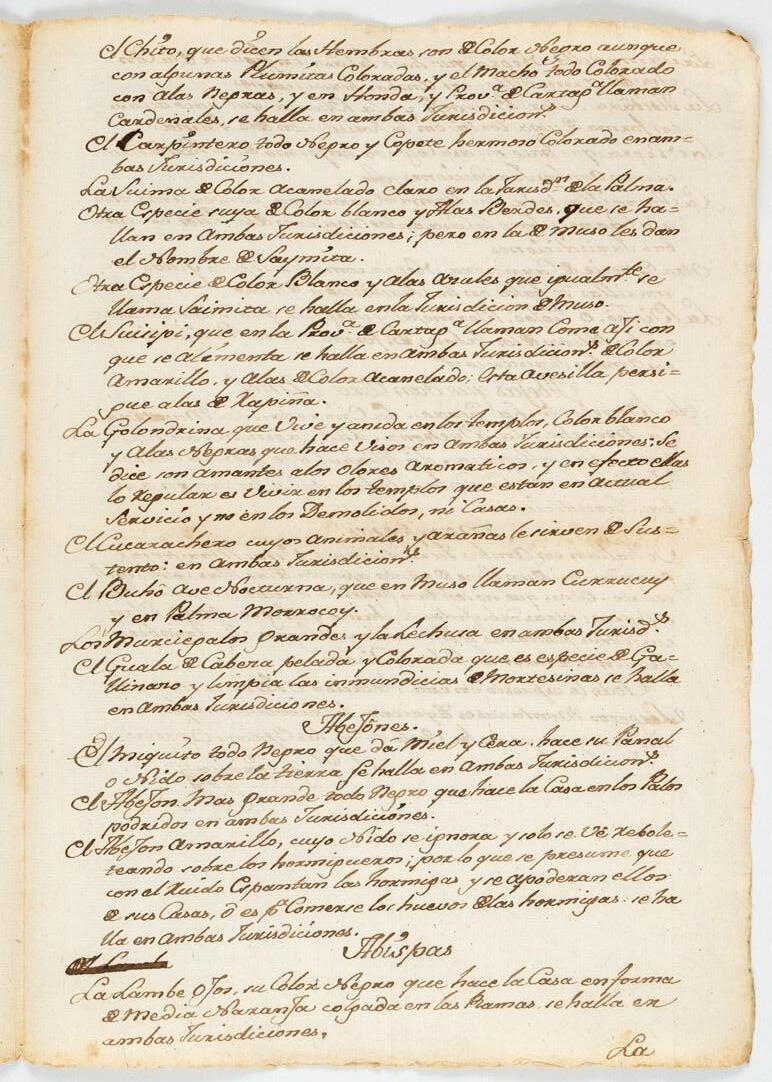 El Chíto, que dicen las Hembras son de Color Negro aunque
con algunas Plumitas Coloradas, y el Macho todo Colorado
con Alas Negras, y en Honda, y Prov.ª de Cartag.ª llaman
Cardenales, se halla en ambas Jurisdicion.s
El Carpintero todo Negro y Copete hermoso Colorado en am=
bas Jurisdiciones.
La Suima de Color Acanelado claro en la Jurisd.on de la Palma.
Otra Especie suya de Color blanco y Alas Berdes, que se ha=
llan en Ambas Jurisdiciones; pero en la de Muso les dan
el Nombre de Saymita.
Otra Especie de Color Blanco y Alas Azules que igualm.te se
llama Saimita se halla en la Jurisdicion de Muso.
El Suisipi, que en la Prov.ª de Cartag.ª llaman Come aji con
que se alimenta se halla en Ambas Jurisdicion.s de Color
Amarillo, y Alas de Color Acanelado; esta avesilla persi=
gue a las de Rapiña.
La Golondrina que Vive y anida en los templos, Color blanco
y Alas Negras que hace Visos en Ambas Jurisdiciones: Se
dice son amantes a los olores aromaticos, y en efecto ellas
lo regular es Vivir en los templos que estan en actual
Servicio y no en los Demolidos, ni Casas.
El Cucarachero cuyos animales y arañas le sirven de Sus=
tento: en Ambas Jurisdicion.s
El Buhô Ave Nocturna, que en Muso llaman Currucuy
y en Palma Morrocoy.
Los Murciegalos grandes y la Lechusa en ambas Jurisd.s
El Guala de Cabeza pelada y Colorada que es especie de Ga=
llinazo y limpia las inmundicias de Mortesinas se halla
en Ambas Jurisdiciones.
Abejónes.
El miquito todo Negro que dá Miel y Cera, hace su Panal
o Nido sobre la tierra se halla en Ambas Jurisdicion.s
El Abejon mas grande todo Negro que hace la Casa en los Palos
podridos en ambas Jurisdiciones.
El Abejon Amarillo, cuyo Nido se ignora y solo se vé rebole=
teando sobre los hormigueros; por lo que se presume que
con el Ruido Espantan las hormigas y se apoderan ellos
de sus Casas, ô es p.ª Comerse los huevos de las hormigas. se ha
lla en Ambas Jurisdiciones.
Abíspas
La Lambe Ojos, su Color Negro que hace la Casa en forma
de Media Naranja colgada en las Ramas. se halla en
ambas Jurisdiciones.
La